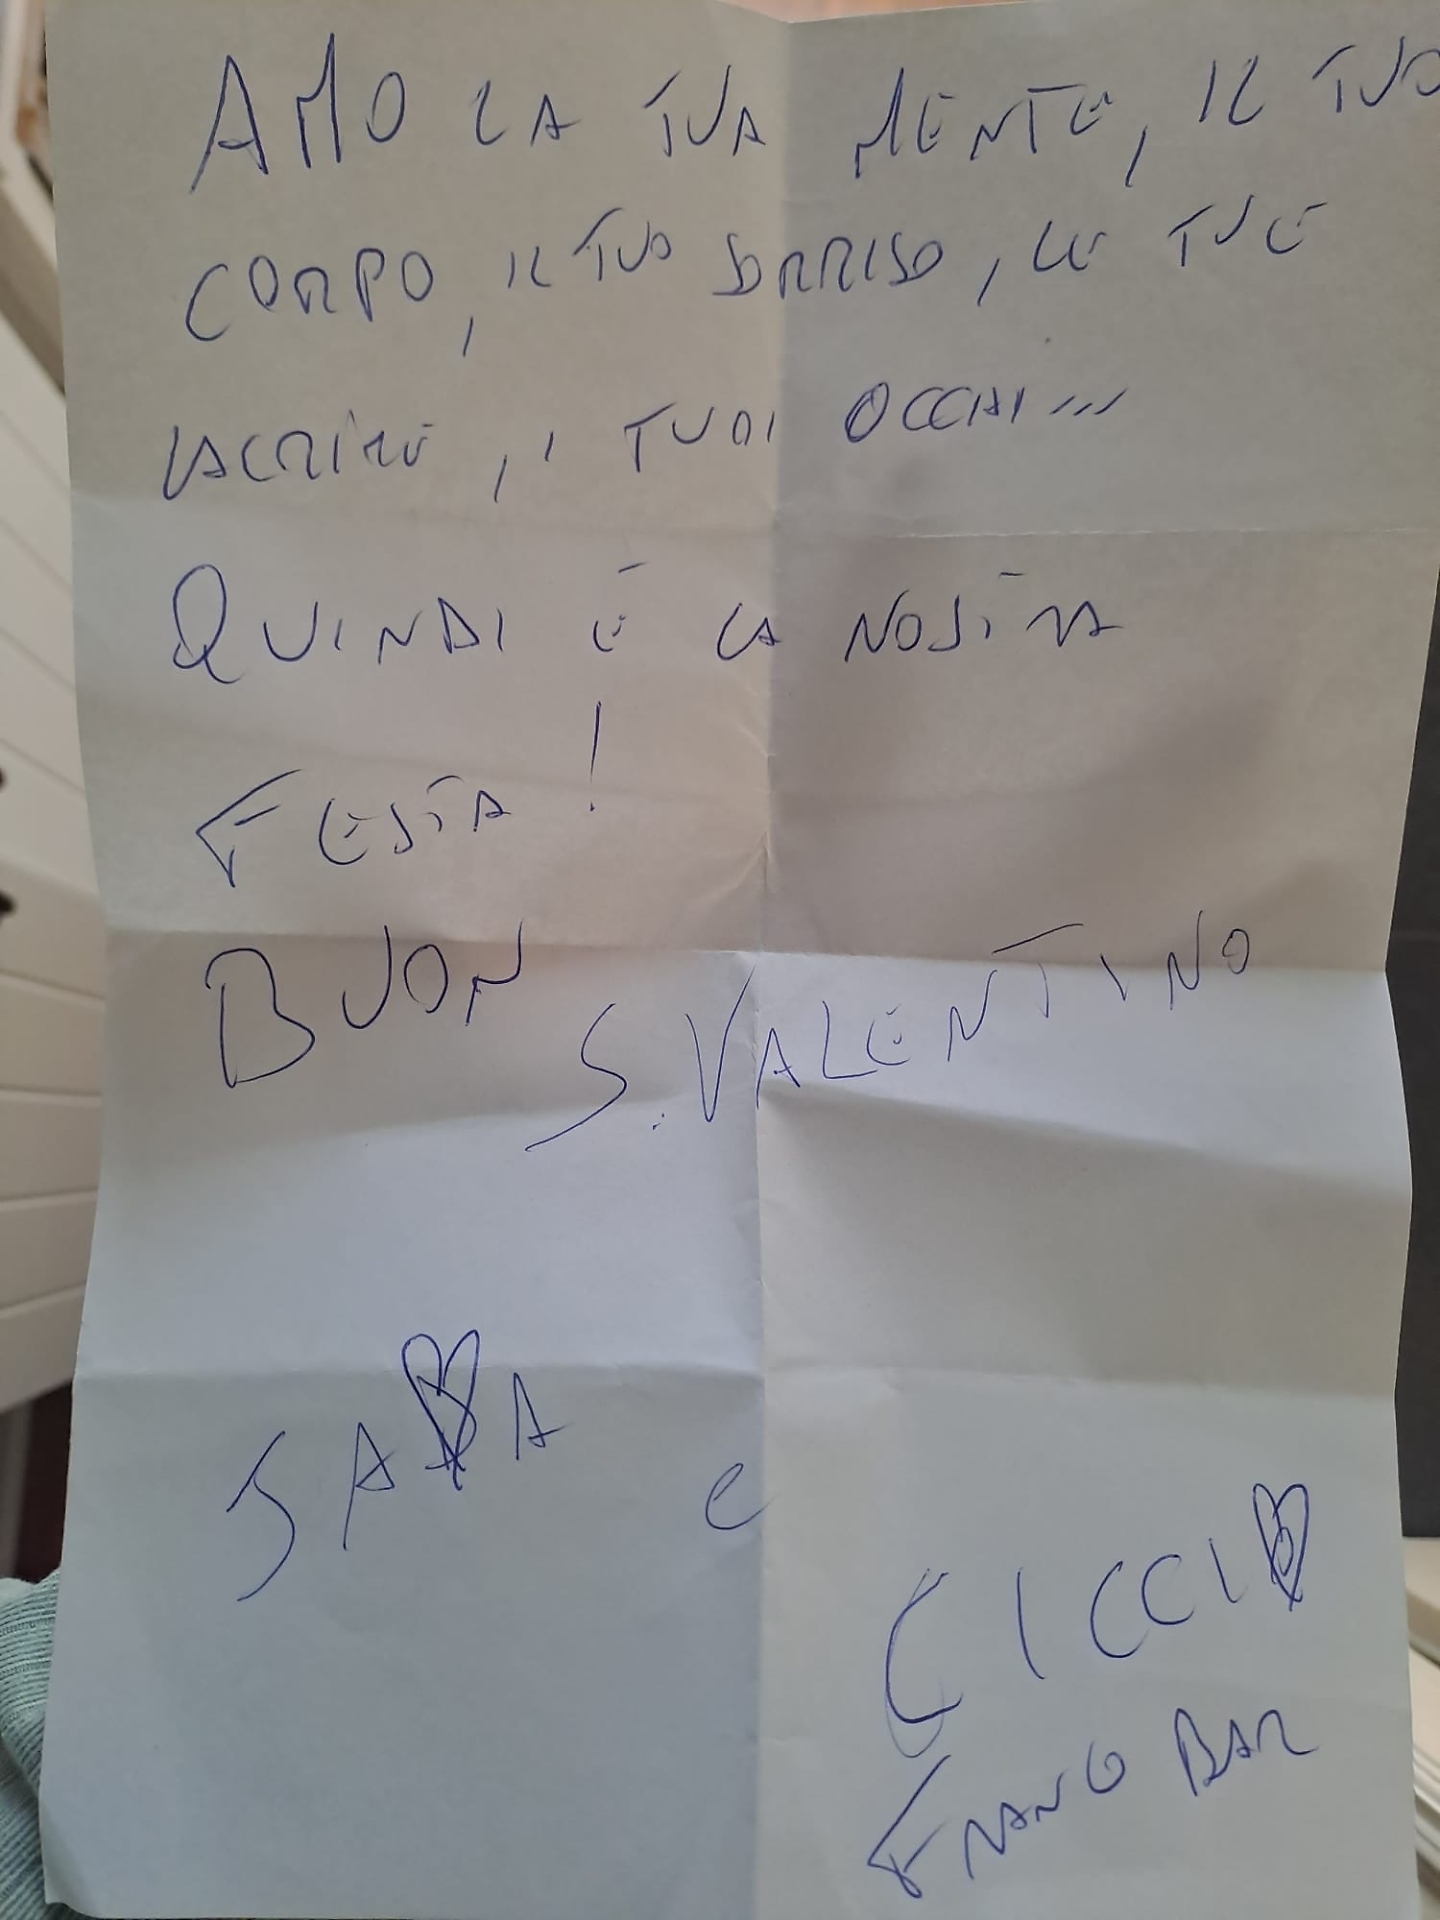 AMO LA TUA MENTE, IL TUO
CORPO, IL TUO SORRISO, LE TUE
LACRIME, I TUOI OCCHI...
QUINDI È LA NOSTRA
FESTA!
BUON
S. VALENTINO
SABA e
CICCIO
FRANCO BAR